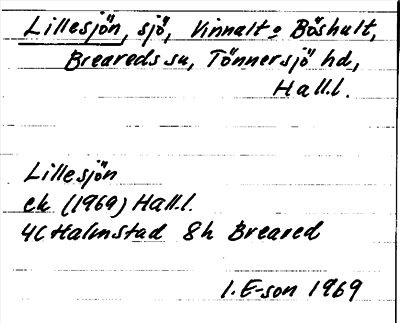 Lillesjön, sjö, Vinnalt o Böshult,
Breareds sn, Tönnersjö hd,
Hall.
Lillesjön
ek (1969) Hall.
4C Halmstad 8h Breared
I. E-son 1969